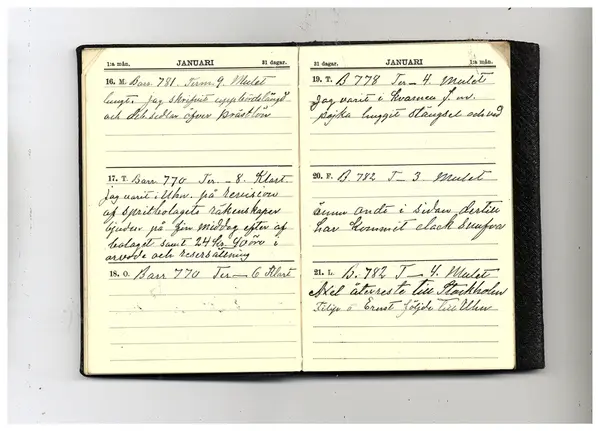 1:a mån. JANUARI 31 dagar.
16. M. Barr 781. Term 9. Mulet
lugnt. Jag skrifvit uppbördslängd
och deb.sedlar öfver prästlön
17. T. Barr 770 Ter. - 8. Klart.
Jag varit i Uhn. på revision
af spritbolagets räkenskaper
bjuden på fin middag efter af
bolaget samt 24 kr. 40 öre i
arvode och reseersättning
18. O. Barr 770 Ter - 6 Klart
31 dagar. JANUARI 1:a mån.
19. T. B 778 Ter - 4. Mulet
Jag varit i kvarnen f. m.
pojka huggit stängsel och ved
20. F. B. 782 T - 3 Mulet
ännu ondt i sidan dertill
har kommit
21. L. B. 782 T - 4. Mulet
Axel återreste till Stockholm
Filip o Ernst följde till Uhn